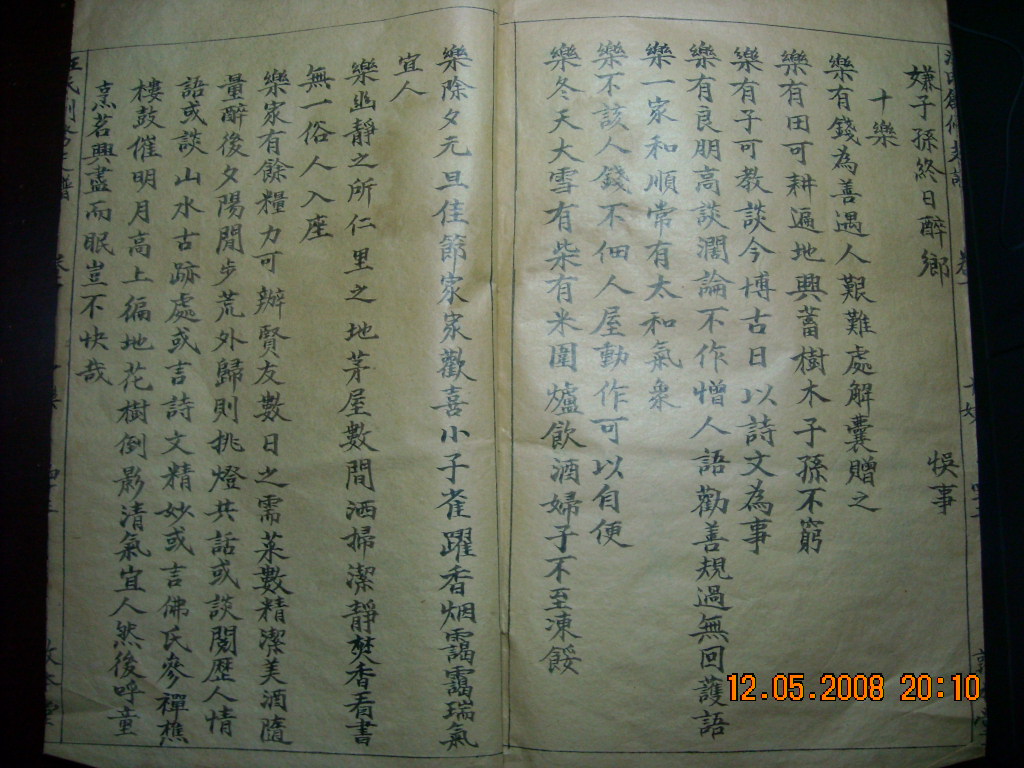 嫌子孫終日醉鄉 悞事
十樂
樂有錢為善遇人艱難處解囊贈之
樂有田可耕遍地興蓄樹木子孫不窮
樂有子可教談今博古日以詩文為事
樂有良朋高談濶論不作憎人語勸善規過無回護語
樂一家和順常有太和氣衆
樂不該人錢不佃人屋動作可以自便
樂冬天大雪有柴有米圍爐飲酒婦子不至凍餒
樂除夕元旦佳節家家歡喜小子雀躍香烟靄靄瑞氣
宜人
樂幽靜之所仁里之地茅屋數間洒掃潔靜焚香看書
無一俗人入座
樂家有餘糧力可辦賢友數日之需菜數精潔美酒隨
量醉後夕陽閒步荒外歸則挑燈共話或談閱歷人情
語或談山水古跡處或言詩文精妙或言佛氏參禪樵
樓鼓催明月高上徧地花樹倒影清氣宜人然後呼童
烹茗興盡而眠豈不快哉
12.05.2008 20:10